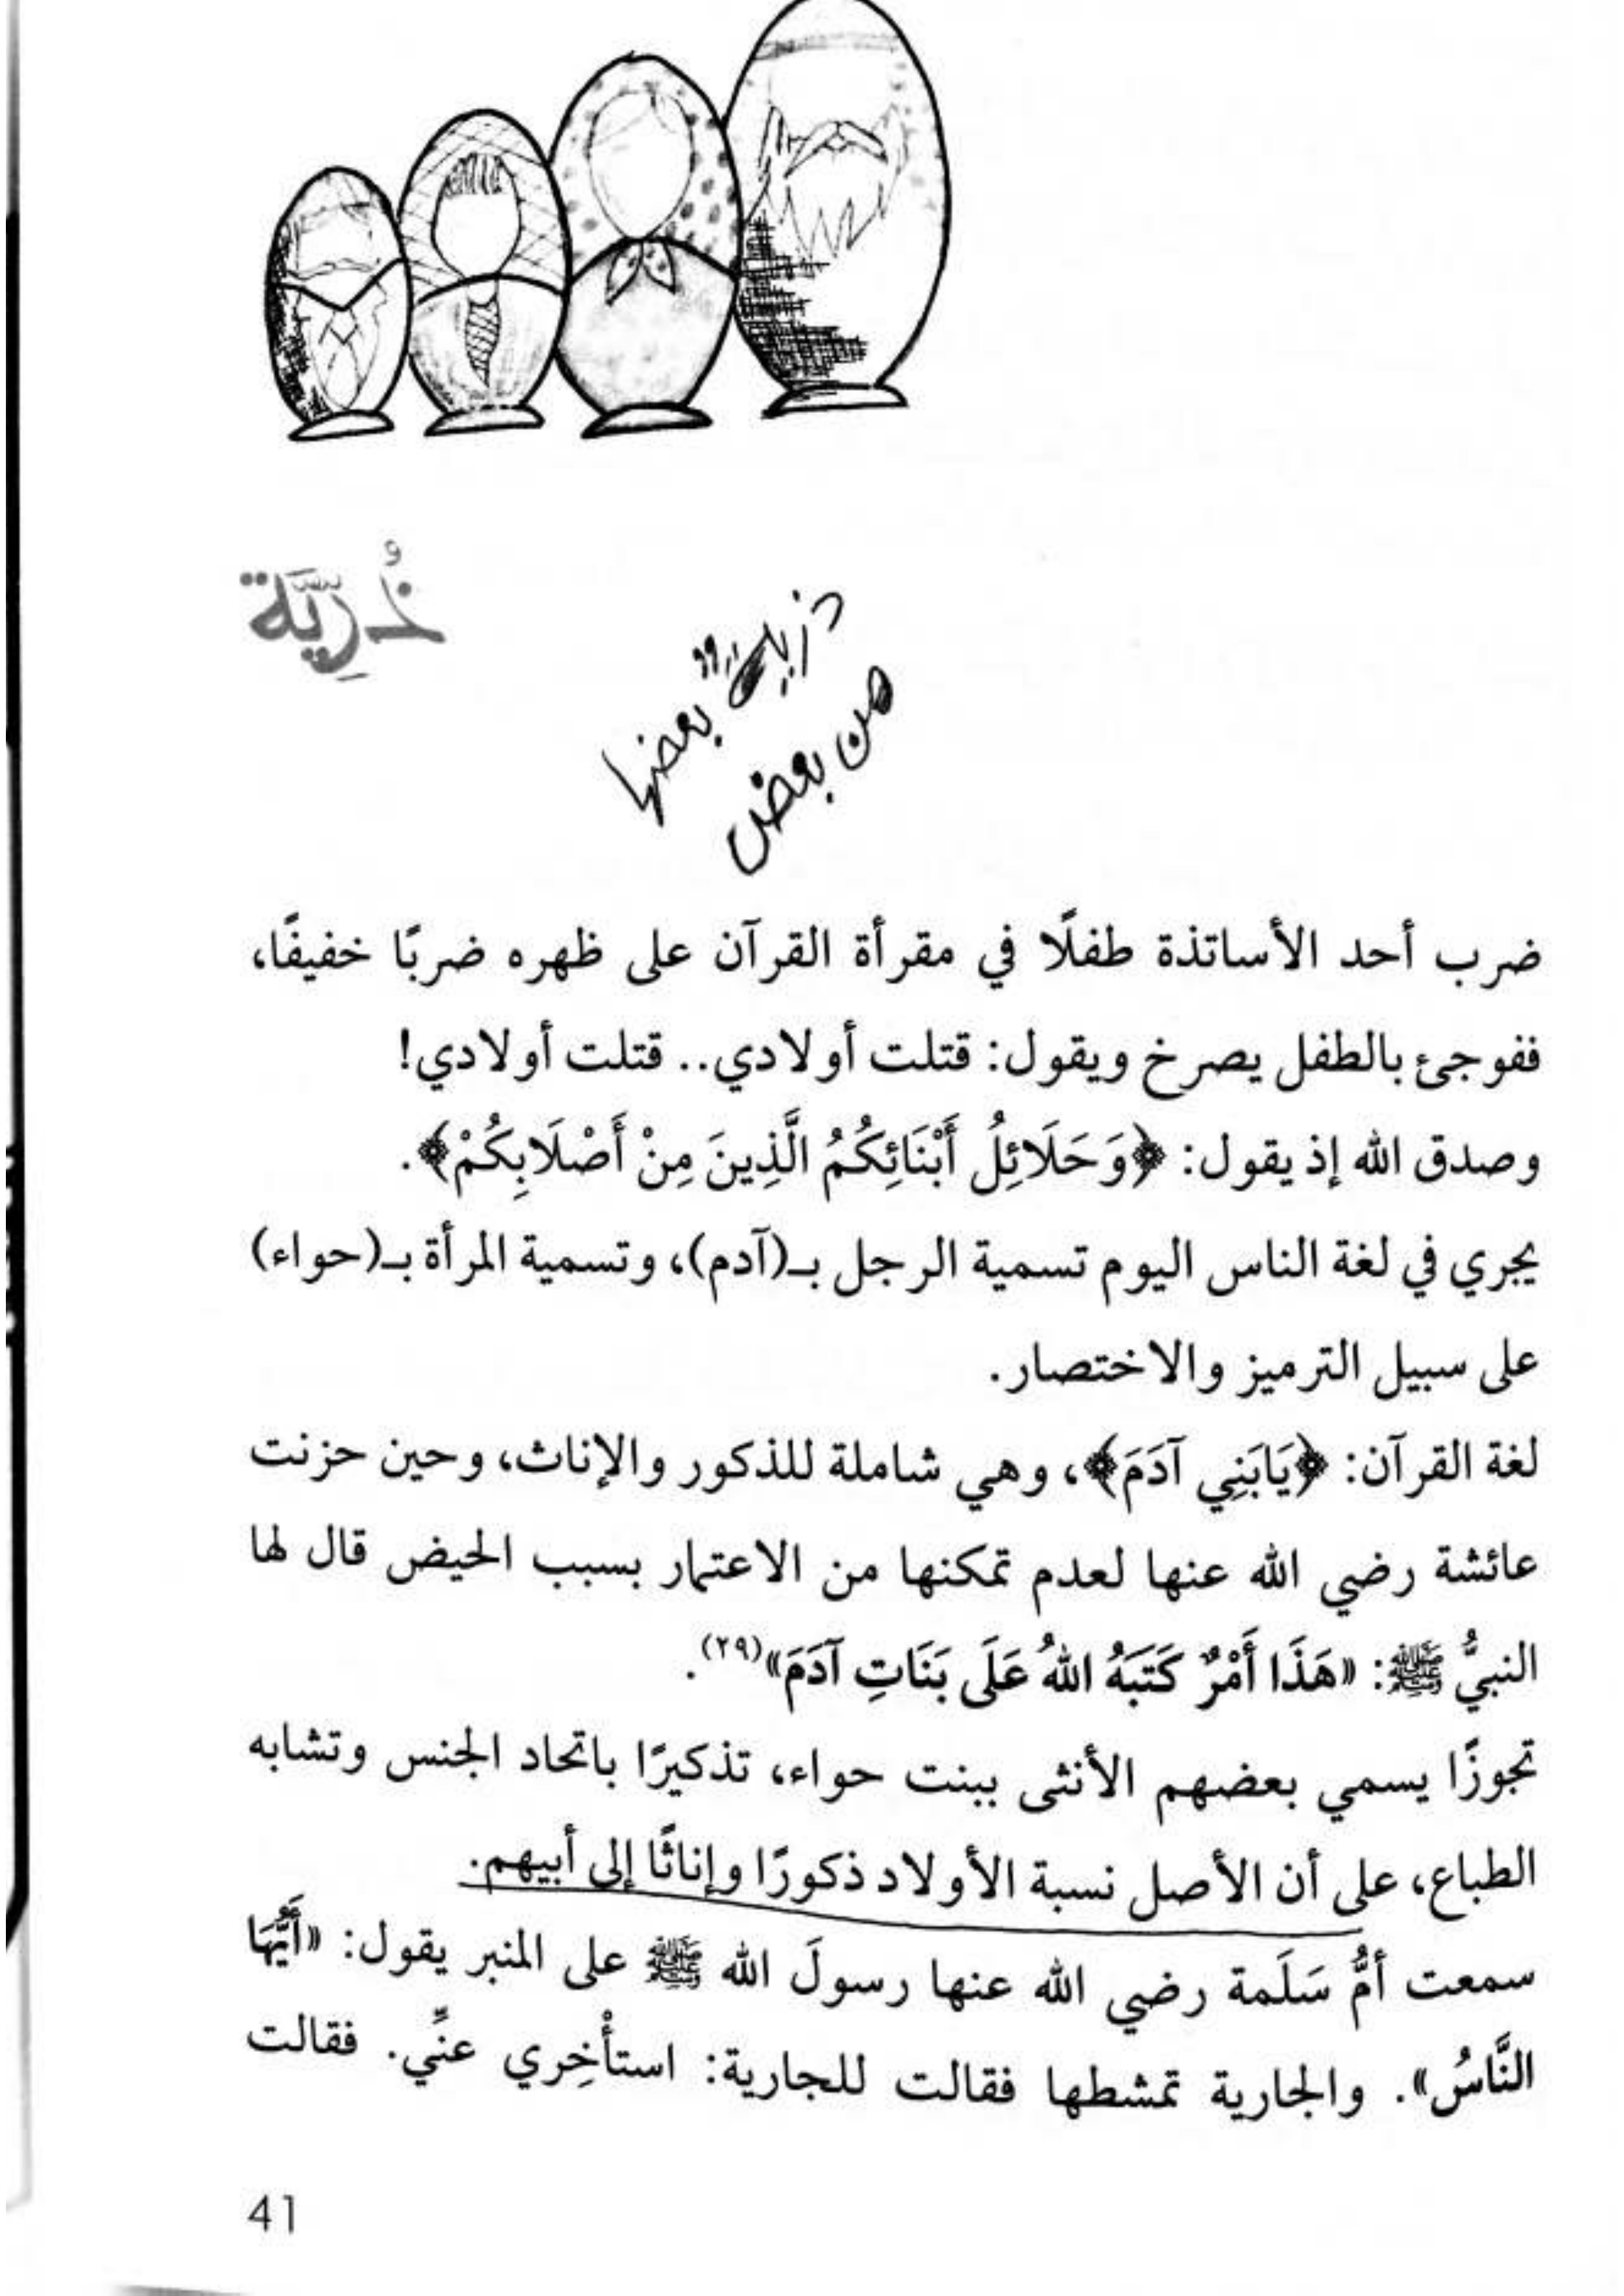 ذُرِّيَّة
ذرية بعضها
من بعض
ضرب أحد الأساتذة طفلًا في مقرأة القرآن على ظهره ضربًا خفيفًا،
ففوجئ بالطفل يصرخ ويقول: قتلت أولادي.. قتلت أولادي!
وصدق الله إذ يقول: ﴿وَحَلَائِلُ أَبْنَائِكُمُ الَّذِينَ مِنْ أَصْلَابِكُمْ﴾.
يجري في لغة الناس اليوم تسمية الرجل بـ(آدم)، وتسمية المرأة بـ(حواء)
على سبيل الترميز والاختصار.
لغة القرآن: ﴿يَابَنِي آدَمَ﴾، وهي شاملة للذكور والإناث، وحين حزنت
عائشة رضي الله عنها لعدم تمكنها من الاعتمار بسبب الحيض قال لها
النبيُّ ﷺ: «هَذَا أَمْرٌ كَتَبَهُ اللهُ عَلَى بَنَاتِ آدَمَ»(٢٩).
تجوزًا يسمي بعضهم الأنثى ببنت حواء، تذكيرًا باتحاد الجنس وتشابه
الطباع، على أن الأصل نسبة الأولاد ذكورًا وإناثًا إلى أبيهم.
سمعت أمُّ سَلَمة رضي الله عنها رسولَ الله ﷺ على المنبر يقول: «أَيُّهَا
النَّاسُ». والجارية تمشطها فقالت للجارية: استأْخِري عنِّي. فقالت
41